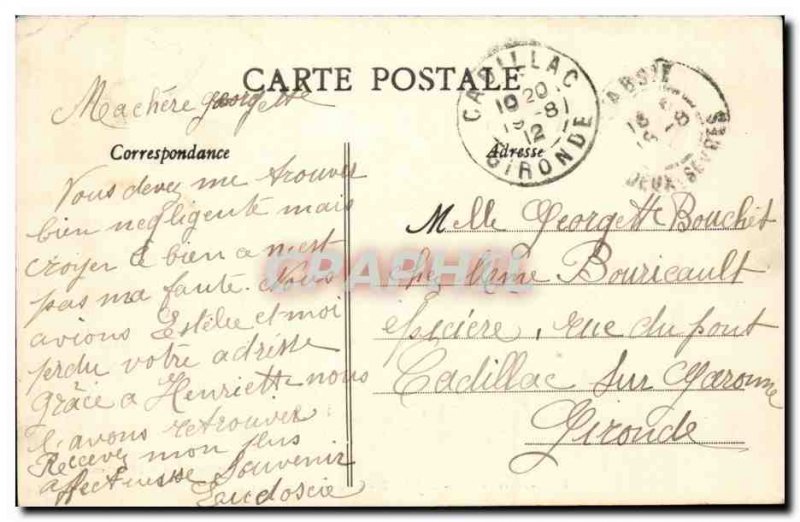 CARTE POSTALE
Ma chère georgette
Correspondance
Vous devez me trouver
bien négligente mais
croyer le bien ce n'est
pas ma faute. Nous
avions Estelle et moi
perdu votre adresse
grâce a Henriette nous
l'avons retrouver
Recevez mon plus
affectueuse Souvenir
Eudoscie
Adresse
Melle Georgette Bouchet
chez Mme Bouricault
épicière, rue du pont
Cadillac sur Garonne
Gironde
CADILLAC
10 20
19 -8
12
GIRONDE
ABSIE
18 -8
DEUX-SEVRES
CPAPHIL